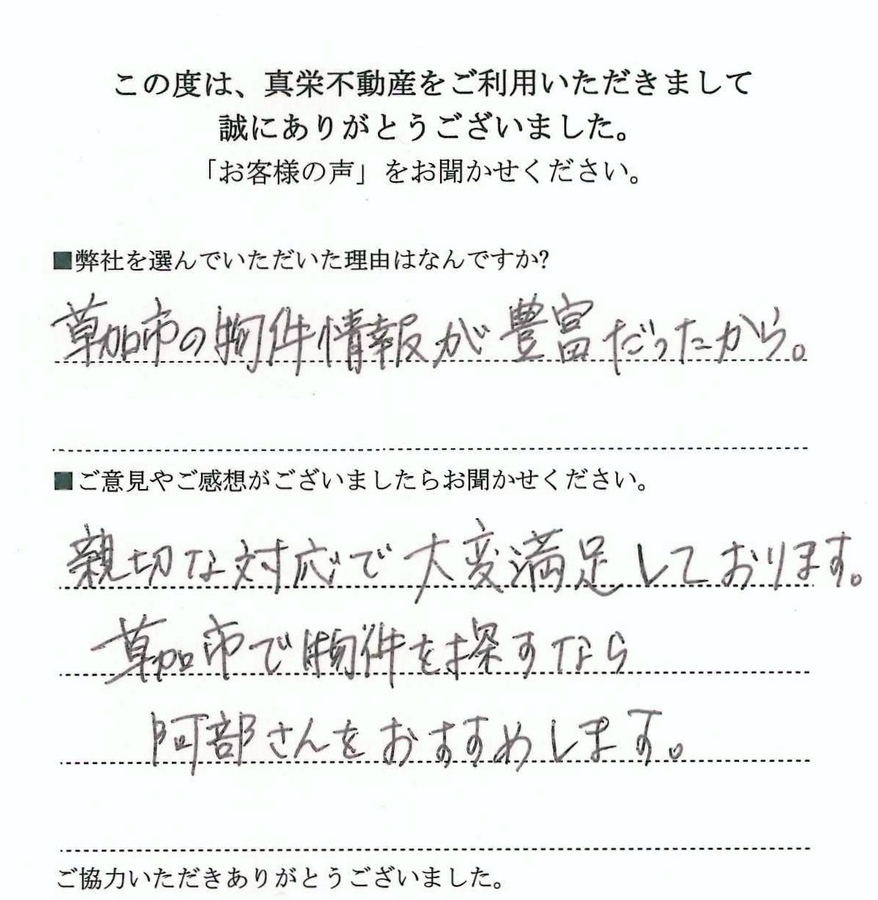 この度は、真栄不動産をご利用いただきまして
誠にありがとうございました。
「お客様の声」をお聞かせください。
■弊社を選んでいただいた理由はなんですか?
草加市の物件情報が豊富だったから。
■ご意見やご感想がございましたらお聞かせください。
親切な対応で大変満足しております。
草加市で物件を探すなら
阿部さんをおすすめします。
ご協力いただきありがとうございました。